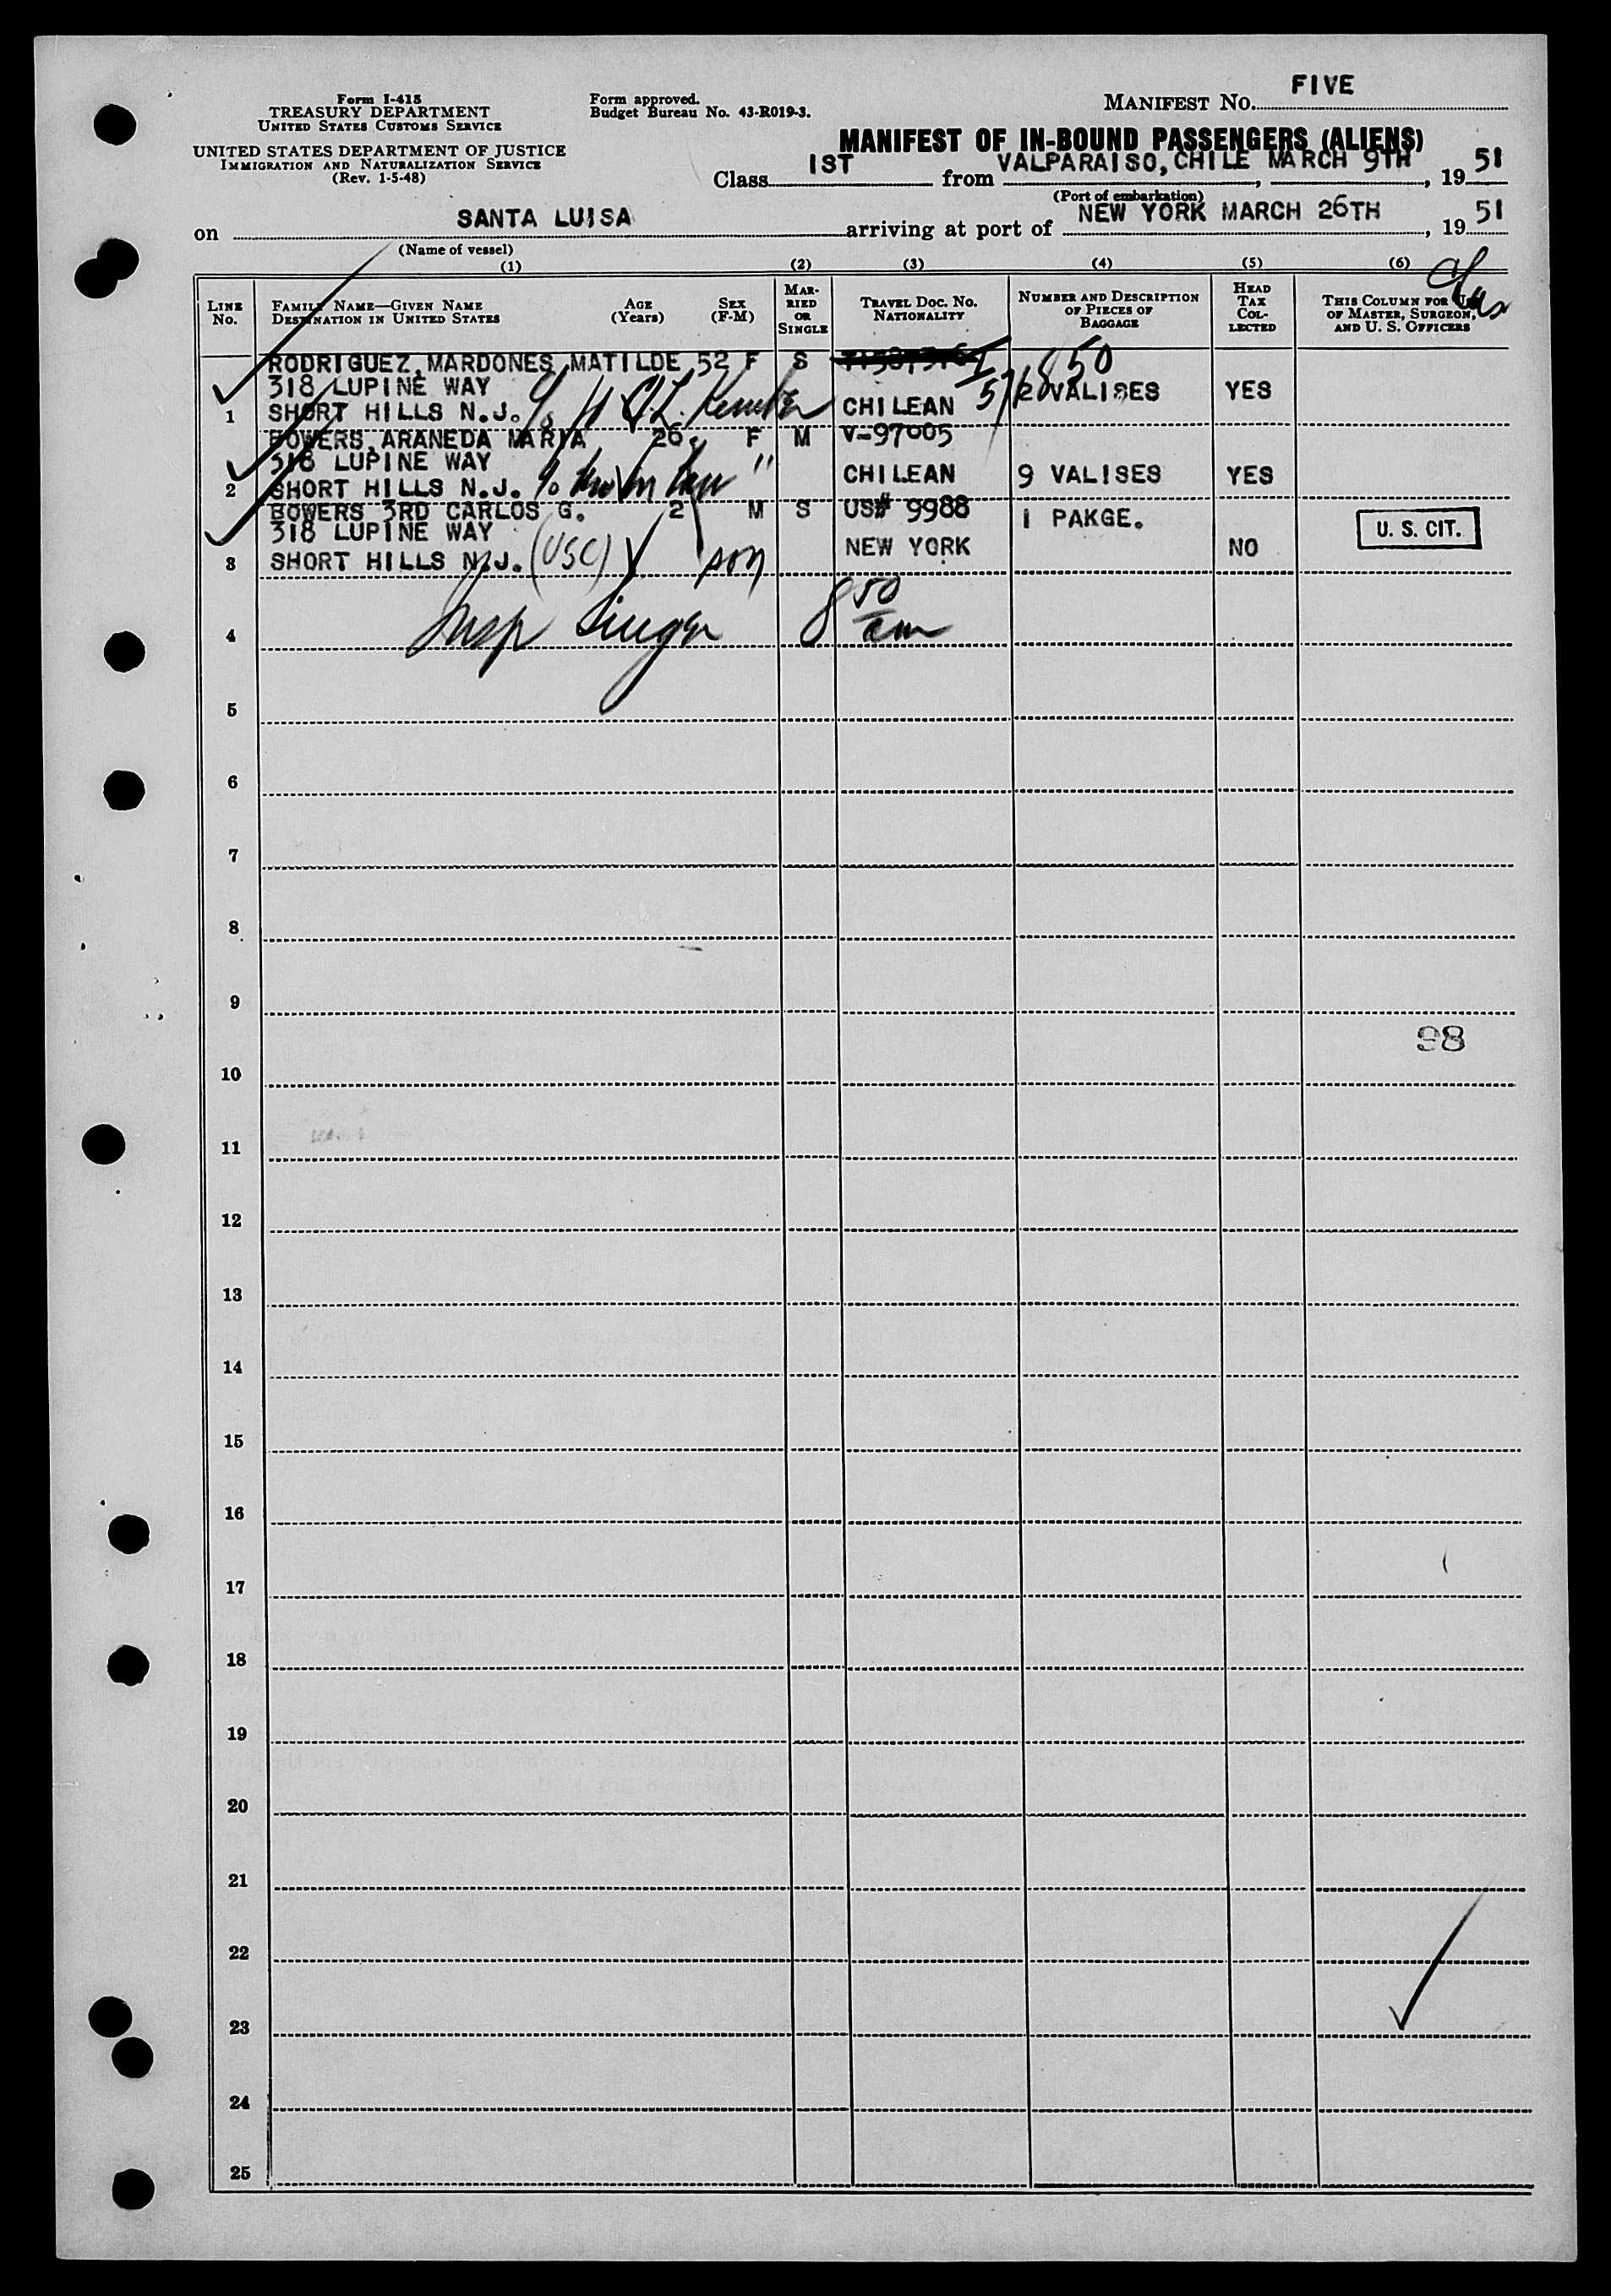 FIVE
Form I-415
TREASURY DEPARTMENT
UNITED STATES CUSTOMS SERVICE
Form approved.
Budget Bureau No. 43-R019-3.
MANIFEST No.
UNITED STATES DEPARTMENT OF JUSTICE
IMMIGRATION AND NATURALIZATION SERVICE
(Rev. 1-5-48)
MANIFEST OF IN-BOUND PASSENGERS (ALIENS)
Class 1ST from VALPARAISO, CHILE MARCH 9TH, 19 51
(Port of embarkation)
on SANTA LUISA arriving at port of NEW YORK MARCH 26TH, 19 51
(Name of vessel)
(1) (2) (3) (4) (5) (6)
LINE No.
FAMILY NAME—GIVEN NAME
DESTINATION IN UNITED STATES
AGE (Years)
SEX (F-M)
MARRIED OR SINGLE
TRAVEL DOC. NO.
NATIONALITY
NUMBER AND DESCRIPTION OF PIECES OF BAGGAGE
HEAD TAX COLLECTED
THIS COLUMN FOR USE OF MASTER, SURGEON, AND U. S. OFFICERS
RODRIGUEZ, MARDONES, MATILDE 52 F S
318 LUPINE WAY 2 VALISES YES
1 SHORT HILLS N.J. CHILEAN
BOWERS, ARANEDA MARIA 26 F M V-97005
318 LUPINE WAY "
2 SHORT HILLS N.J. CHILEAN 9 VALISES YES
BOWERS 3RD CARLOS G. 2 M S US# 9988 1 PAKGE. U. S. CIT.
318 LUPINE WAY
3 SHORT HILLS N.J. (USC) son NEW YORK NO
4 Insp Singer 8 50 am
5
6
7
8
9
98
10
11
12
13
14
15
16
17
18
19
20
21
22
23
24
25